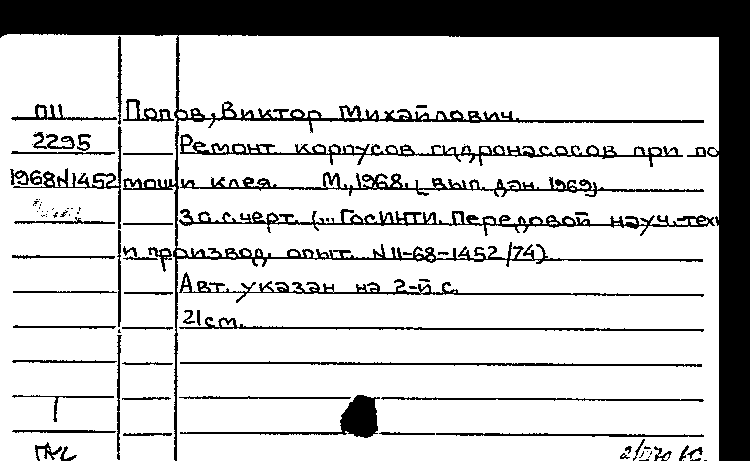 П11 Попов, Виктор Михайлович.
2295 Ремонт корпусов гидронасосов при по
1968N1452 мощи клея. М., 1968. [вып. дан. 1969].
30 с. черт. (... ГосИНТИ. Передовой науч.-техн
и производ. опыт. N 11-68-1452/74)
Авт. указан на 2-й с.
21 см.
1